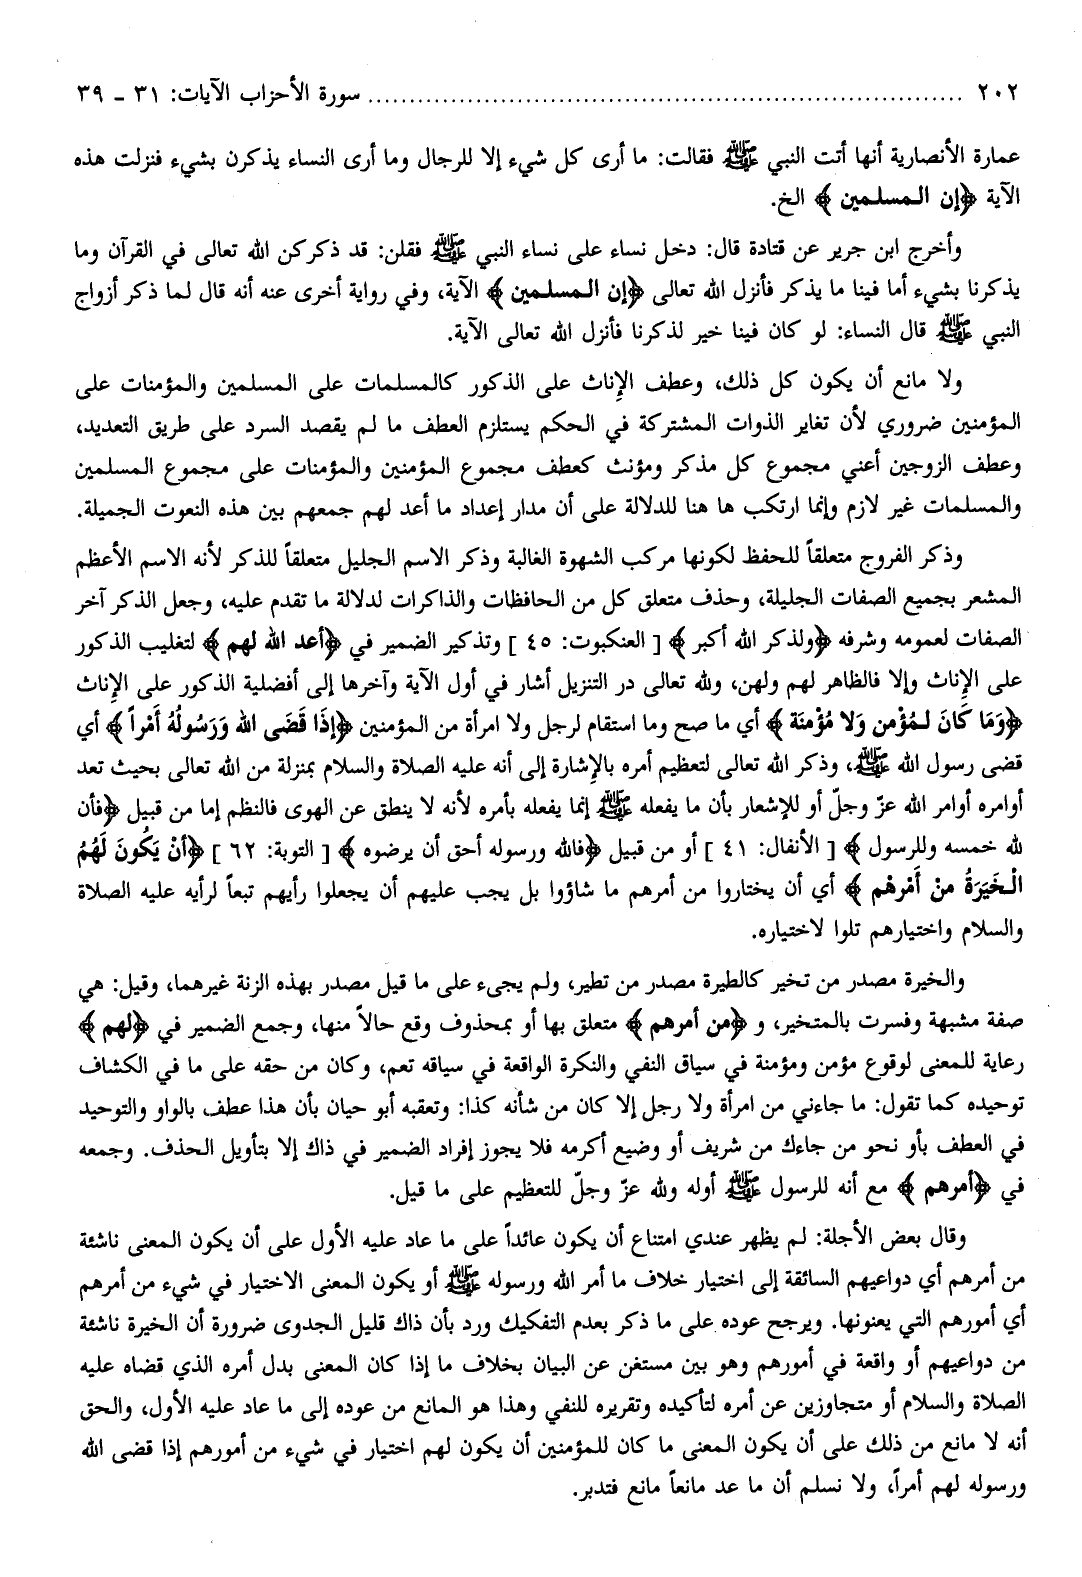 ٢٠٢ ........................................................................ سورة الأحزاب الآيات: ٣١ ـ ٣٩
عمارة الأنصارية أنها أتت النبي ﷺ فقالت: ما أرى كل شيء إلا للرجال وما أرى النساء يذكرن بشيء فنزلت هذه
الآية ﴿إن المسلمين﴾ الخ.
وأخرج ابن جرير عن قتادة قال: دخل نساء على نساء النبي ﷺ فقلن: قد ذكركن الله تعالى في القرآن وما
يذكرنا بشيء أما فينا ما يذكر فأنزل الله تعالى ﴿إن المسلمين﴾ الآية، وفي رواية أخرى عنه أنه قال لما ذكر أزواج
النبي ﷺ قال النساء: لو كان فينا خير لذكرنا فأنزل الله تعالى الآية.
ولا مانع أن يكون كل ذلك، وعطف الإِناث على الذكور كالمسلمات على المسلمين والمؤمنات على
المؤمنين ضروري لأن تغاير الذوات المشتركة في الحكم يستلزم العطف ما لم يقصد السرد على طريق التعديد،
وعطف الزوجين أعني مجموع كل مذكر ومؤنث كعطف مجموع المؤمنين والمؤمنات على مجموع المسلمين
والمسلمات غير لازم وإنما ارتكب ها هنا للدلالة على أن مدار إعداد ما أعد لهم جمعهم بين هذه النعوت الجميلة.
وذكر الفروج متعلقاً للحفظ لكونها مركب الشهوة الغالبة وذكر الاسم الجليل متعلقاً للذكر لأنه الاسم الأعظم
المشعر بجميع الصفات الجليلة، وحذف متعلق كل من الحافظات والذاكرات لدلالة ما تقدم عليه، وجعل الذكر آخر
الصفات لعمومه وشرفه ﴿ولذكر الله أكبر﴾ [ العنكبوت: ٤٥ ] وتذكير الضمير في ﴿أعد الله لهم﴾ لتغليب الذكور
على الإِناث وإلا فالظاهر لهم ولهن، ولله تعالى در التنزيل أشار في أول الآية وآخرها إلى أفضلية الذكور على الإِناث
﴿وَمَا كَانَ لمُؤْمن وَلا مُؤْمنَة﴾ أي ما صح وما استقام لرجل ولا امرأة من المؤمنين ﴿إذَا قَضَى الله وَرَسُولُهُ أَمْراً﴾ أي
قضى رسول الله ﷺ، وذكر الله تعالى لتعظيم أمره بالإِشارة إلى أنه عليه الصلاة والسلام بمنزلة من الله تعالى بحيث تعد
أوامره أوامر الله عزّ وجلّ أو للإشعار بأن ما يفعله ﷺ إنما يفعله بأمره لأنه لا ينطق عن الهوى فالنظم إما من قبيل ﴿فأن
لله خمسه وللرسول﴾ [ الأنفال: ٤١ ] أو من قبيل ﴿فالله ورسوله أحق أن يرضوه﴾ [ التوبة: ٦٢ ] ﴿أنْ يَكُونَ لَهُمُ
الْخَيَرَةُ منْ أَمْرهْم﴾ أي أن يختاروا من أمرهم ما شاؤوا بل يجب عليهم أن يجعلوا رأيهم تبعاً لرأيه عليه الصلاة
والسلام واختيارهم تلوا لاختياره.
والخيرة مصدر من تخير كالطيرة مصدر من تطير، ولم يجىء على ما قيل مصدر بهذه الزنة غيرهما، وقيل: هي
صفة مشبهة وفسرت بالمتخير، و ﴿من أمرهم﴾ متعلق بها أو بمحذوف وقع حالاً منها، وجمع الضمير في ﴿لهم﴾
رعاية للمعنى لوقوع مؤمن ومؤمنة في سياق النفي والنكرة الواقعة في سياقه تعم، وكان من حقه على ما في الكشاف
توحيده كما تقول: ما جاءني من امرأة ولا رجل إلا كان من شأنه كذا: وتعقبه أبو حيان بأن هذا عطف بالواو والتوحيد
في العطف بأو نحو من جاءك من شريف أو وضيع أكرمه فلا يجوز إفراد الضمير في ذاك إلا بتأويل الحذف. وجمعه
في ﴿أمرهم﴾ مع أنه للرسول ﷺ أوله ولله عزّ وجلّ للتعظيم على ما قيل.
وقال بعض الأجلة: لم يظهر عندي امتناع أن يكون عائداً على ما عاد عليه الأول على أن يكون المعنى ناشئة
من أمرهم أي دواعيهم السائقة إلى اختيار خلاف ما أمر الله ورسوله ﷺ أو يكون المعنى الاختيار في شيء من أمرهم
أي أمورهم التي يعنونها. ويرجح عوده على ما ذكر بعدم التفكيك ورد بأن ذاك قليل الجدوى ضرورة أن الخيرة ناشئة
من دواعيهم أو واقعة في أمورهم وهو بين مستغن عن البيان بخلاف ما إذا كان المعنى بدل أمره الذي قضاه عليه
الصلاة والسلام أو متجاوزين عن أمره لتأكيده وتقريره للنفي وهذا هو المانع من عوده إلى ما عاد عليه الأول، والحق
أنه لا مانع من ذلك على أن يكون المعنى ما كان للمؤمنين أن يكون لهم اختيار في شيء من أمورهم إذا قضى الله
ورسوله لهم أمراً، ولا نسلم أن ما عد مانعاً مانع فتدبر.